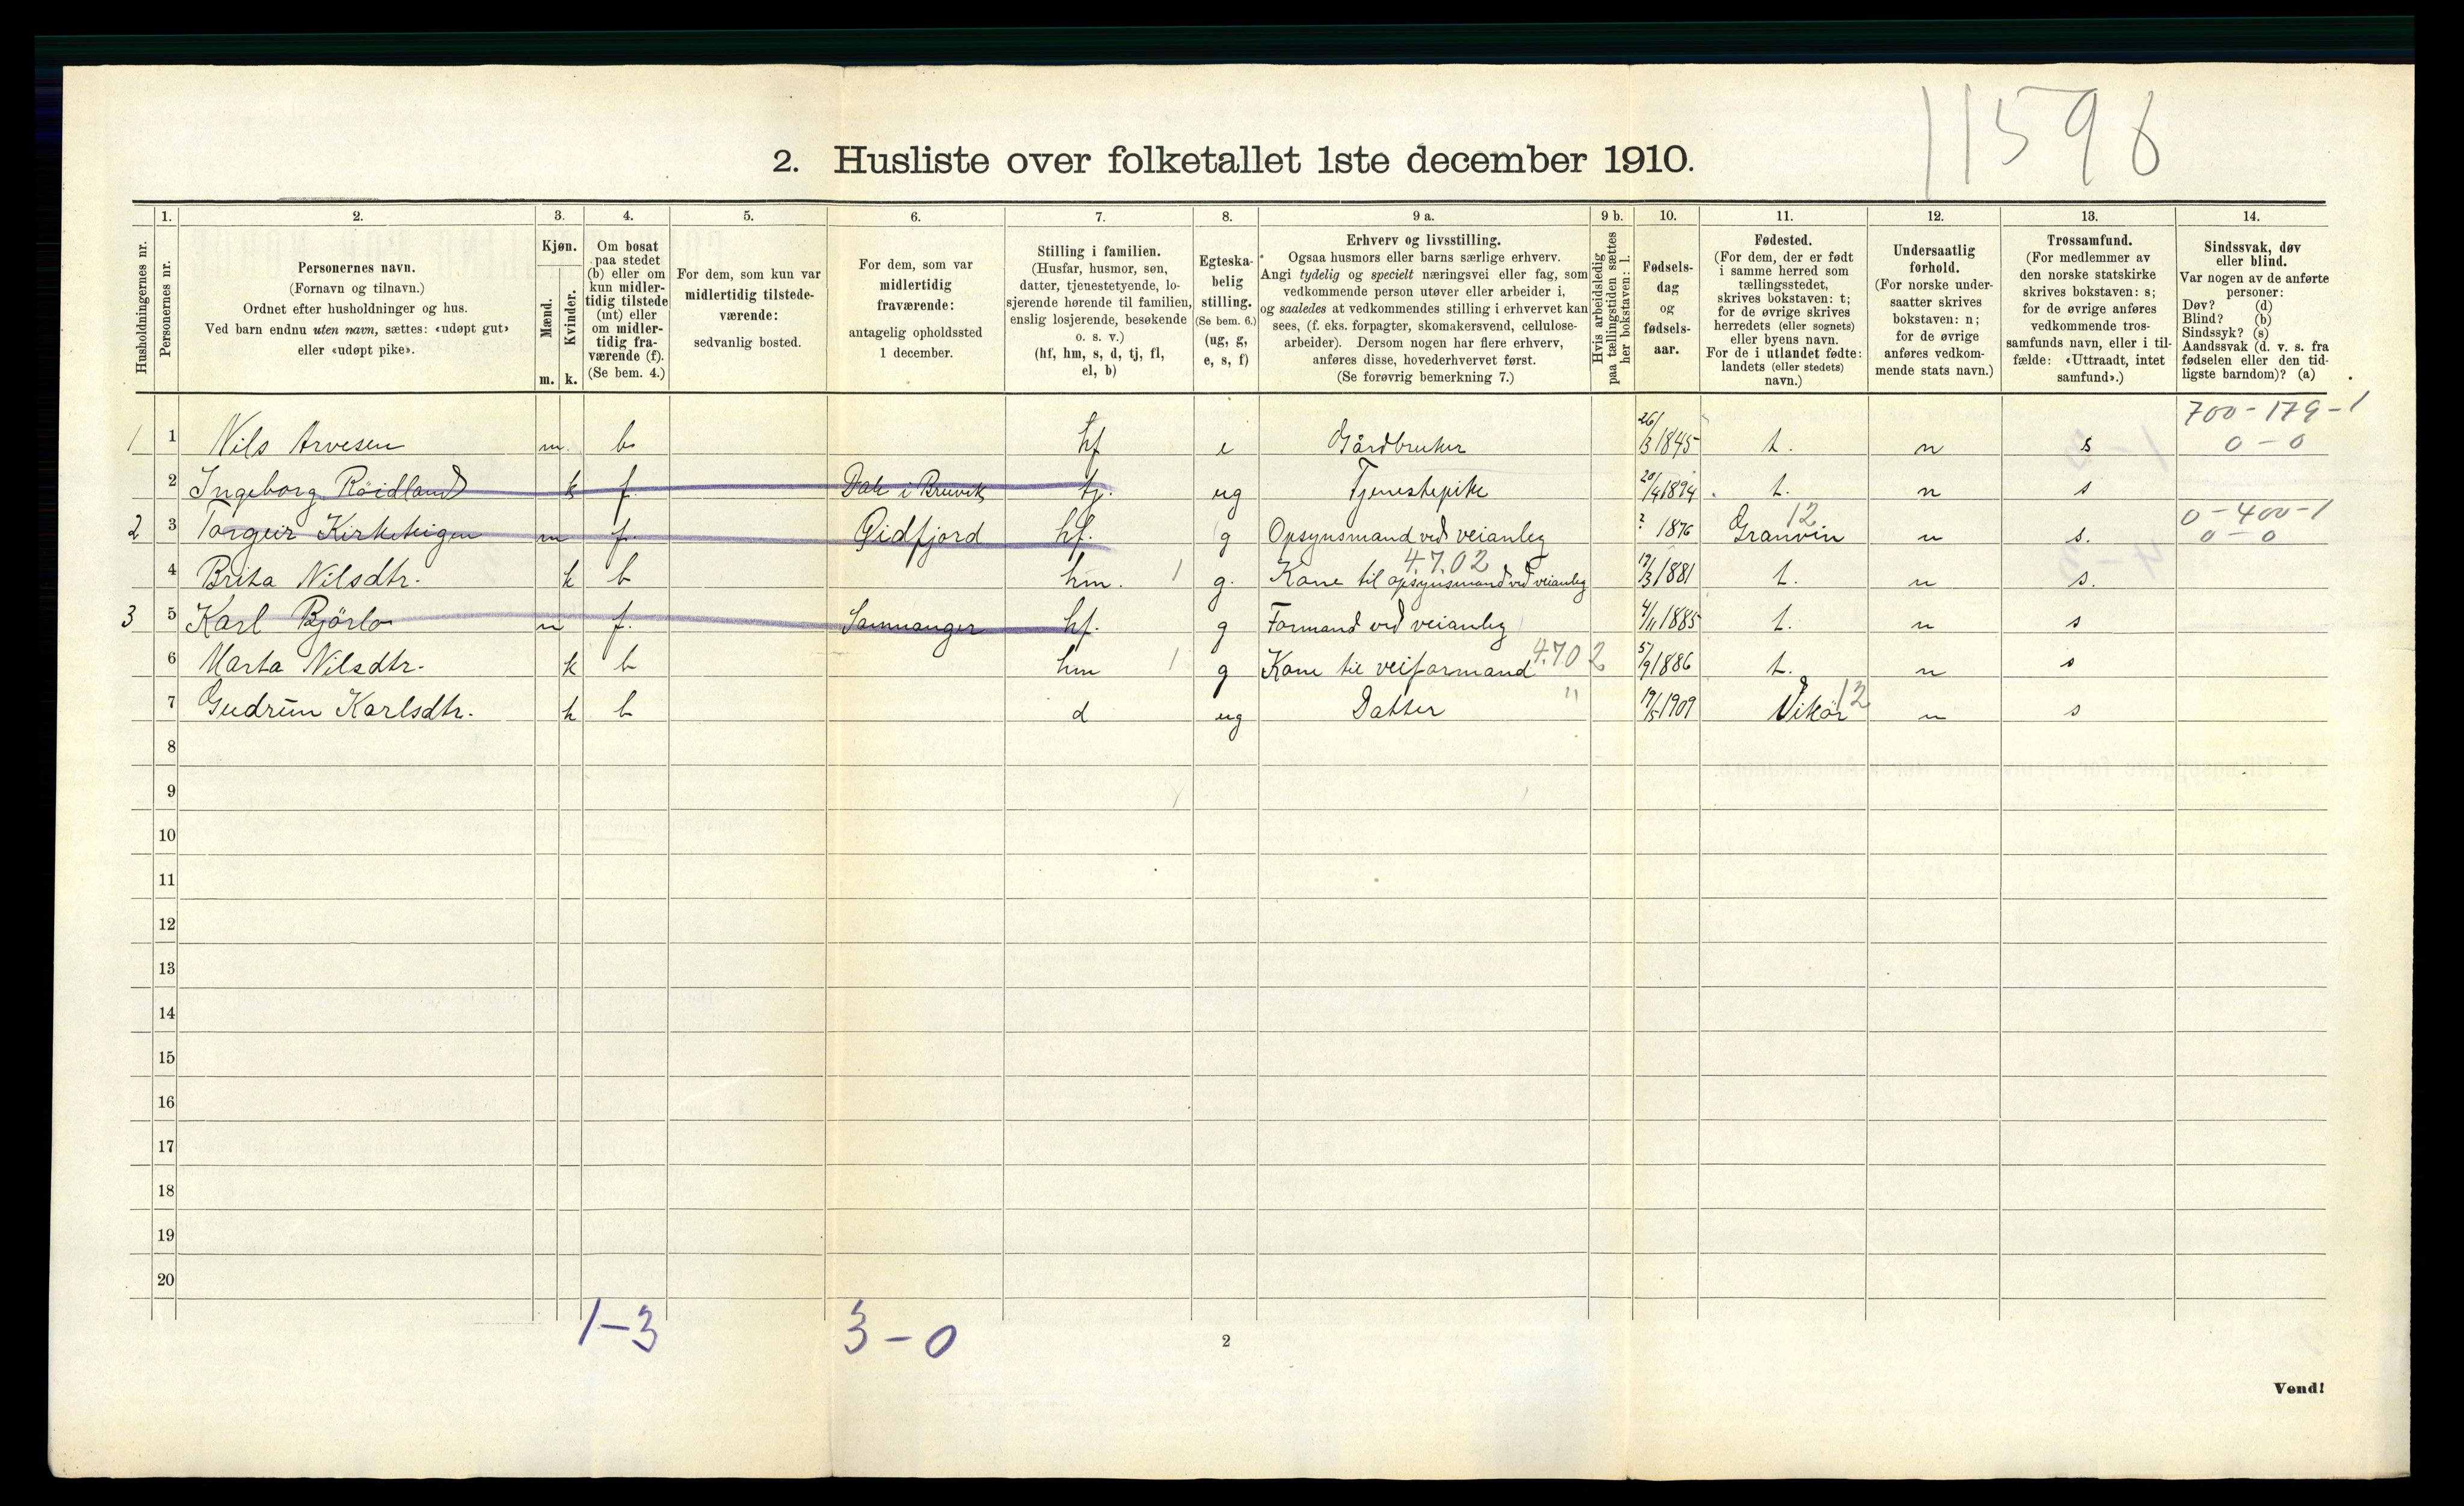 11596
2. Husliste over folketallet 1ste december 1910.
Husholdningernes nr.
1.
Personernes nr.
2.
Personernes navn.
(Fornavn og tilnavn.)
Ordnet efter husholdninger og hus.
Ved barn endnu uten navn, sættes: «udøpt gut»
eller «udøpt pike».
3.
Kjøn.
Mænd.
Kvinder.
m. k.
4.
Om bosat
paa stedet
(b) eller om
kun midler-
tidig tilstede
(mt) eller
om midler-
tidig fra-
værende (f).
(Se bem. 4.)
5.
For dem, som kun var
midlertidig tilstede-
værende:
sedvanlig bosted.
6.
For dem, som var
midlertidig
fraværende:
antagelig opholdssted
1 december.
7.
Stilling i familien.
(Husfar, husmor, søn,
datter, tjenestetyende, lo-
sjerende hørende til familien,
enslig losjerende, besøkende
o. s. v.)
(hf, hm, s, d, tj, fl,
el, b)
8.
Egteska-
belig
stilling.
(Se bem. 6.)
(ug, g,
e, s, f)
9 a.
Erhverv og livsstilling.
Ogsaa husmors eller barns særlige erhverv.
Angi tydelig og specielt næringsvei eller fag, som
vedkommende person utøver eller arbeider i,
og saaledes at vedkommendes stilling i erhvervet kan
sees, (f. eks. forpagter, skomakersvend, cellulose-
arbeider). Dersom nogen har flere erhverv,
anføres disse, hovederhvervet først.
(Se forøvrig bemerkning 7.)
9 b.
Hvis arbeidsledig
paa tællingstiden sættes
her bokstaven: l.
10.
Fødsels-
dag
og
fødsels-
aar.
11.
Fødested.
(For dem, der er født
i samme herred som
tællingsstedet,
skrives bokstaven: t;
for de øvrige skrives
herredets (eller sognets)
eller byens navn.
For de i utlandet fødte:
landets (eller stedets)
navn.)
12.
Undersaatlig
forhold.
(For norske under-
saatter skrives
bokstaven: n;
for de øvrige
anføres vedkom-
mende stats navn.)
13.
Trossamfund.
(For medlemmer av
den norske statskirke
skrives bokstaven: s;
for de øvrige anføres
vedkommende tros-
samfunds navn, eller i til-
fælde: «Uttraadt, intet
samfund».)
14.
Sindssvak, døv
eller blind.
Var nogen av de anførte
personer:
Døv? (d)
Blind? (b)
Sindssyk? (s)
Aandssvak (d. v. s. fra
fødselen eller den tid-
ligste barndom)? (a)
700-179-1
1 1 Nils Arvesen m. b. hf e Gårdbruker 26/3 1845 t. n s 0-0
2 Ingeborg Röidland k f. Dale i Bruvik tj. ug Tjenestepike 20/4 1894 t. n s
0-400-1
2 3 Torgeir m f. Eidfjord hf. g Opsynsmand ved veianleg ? 1876 Granvin 12 n s. 0-0
4.7.02
4 Brita Nilsdtr. k b hm. 1 g. Kone til opsynsmand ved veianleg 19/3 1881 t. n s.
3 5 Karl Björlo m f. Samnanger hf. g Formand ved veianleg 4/11 1885 t. n s
6 Marta Nilsdtr. k b hm 1 g Kone til veiformand 4.702 5/9 1886 t. n s
7 Gudrun Karlsdtr. k b d ug Datter " 19/5 1909 Vikör 12 n s
8
9
10
11
12
13
14
15
16
17
18
19
20
1-3
3-0
2
Vend!